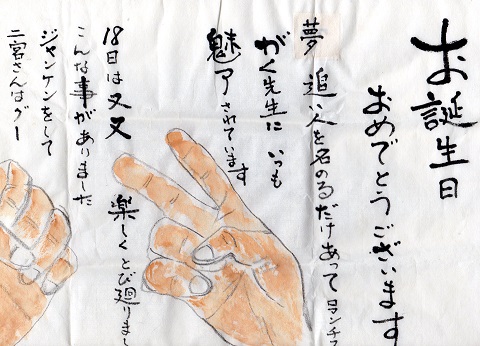 お誕生日
おめでとうございます
夢追い人を名のるだけあってヨンチフ
がく先生にいつも
魅了されています
楽しくとび廻りまし
18日は又又
こんな事がありました
ジャンケンをして
二宮さんはグー